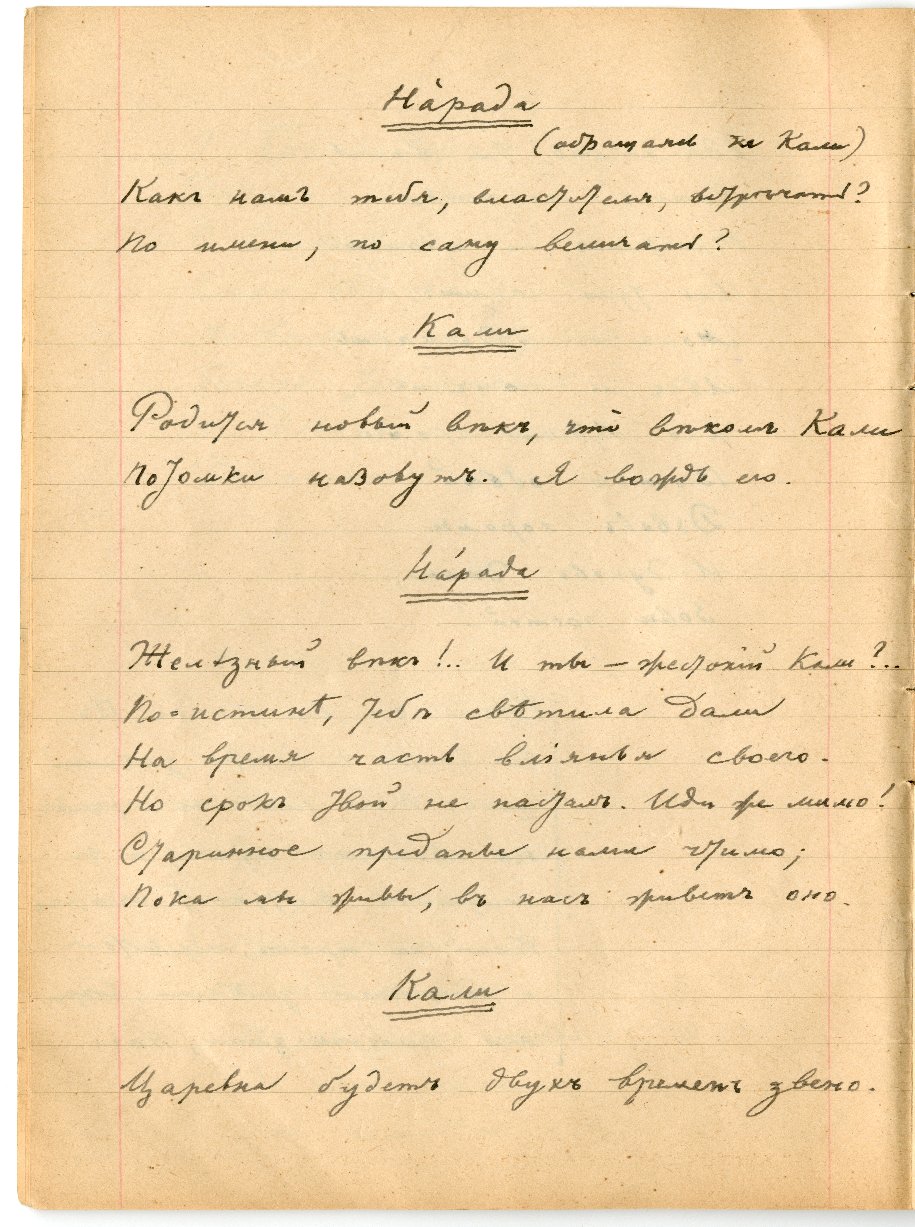 На́рада
(обращаясь къ Кали)
Какъ намъ тебя, властителя, встрѣчать?
По имени, по сану величать?
Кали
Родится новый вѣкъ, что вѣкомъ Кали
Потомки назовутъ. Я вождь его.
На́рада
Желѣзный вѣкъ!.. И ты – жестокій Кали?..
По=истинѣ, тебѣ свѣтила дали
На время часть вліянья своего.
Но срокъ твой не насталъ. Иди же мимо!
Старинное преданье нами чтимо;
Пока мы живы, въ насъ живетъ оно.
Кали
Царевна будетъ двухъ временъ звено.